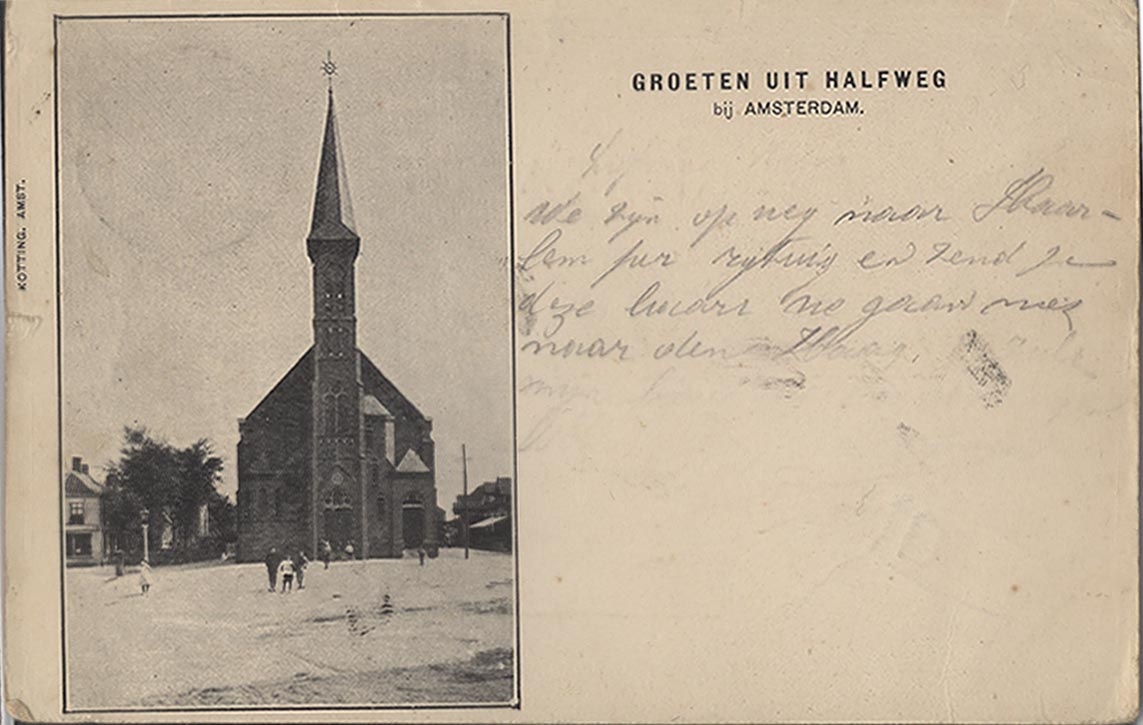 GROETEN UIT HALFWEG
bij AMSTERDAM.
We zijn op weg naar Haar-
lem per rijtuig en zend je
deze kaart we gaan
naar den Haag.
mijn
KOTTING. AMST.